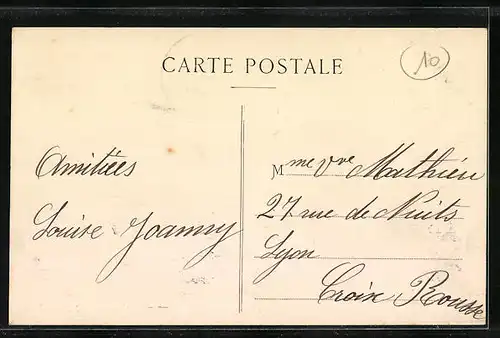 10
CARTE POSTALE
Amitiées
Louise Joanny
Mme Vve Mathieu
27 rue de Nuits
Lyon
Croix Rousse